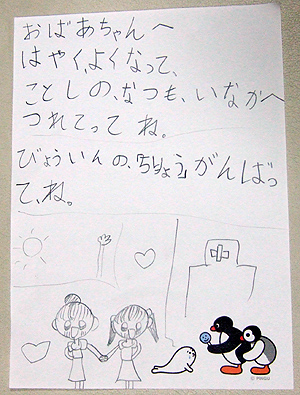 おばあちゃんへ
はやく、よくなって、
ことしの、なつも、いなかへ
つれてって ね。
びょういんの、「ちりょう」がんばっ
て、ね。
© PINGU